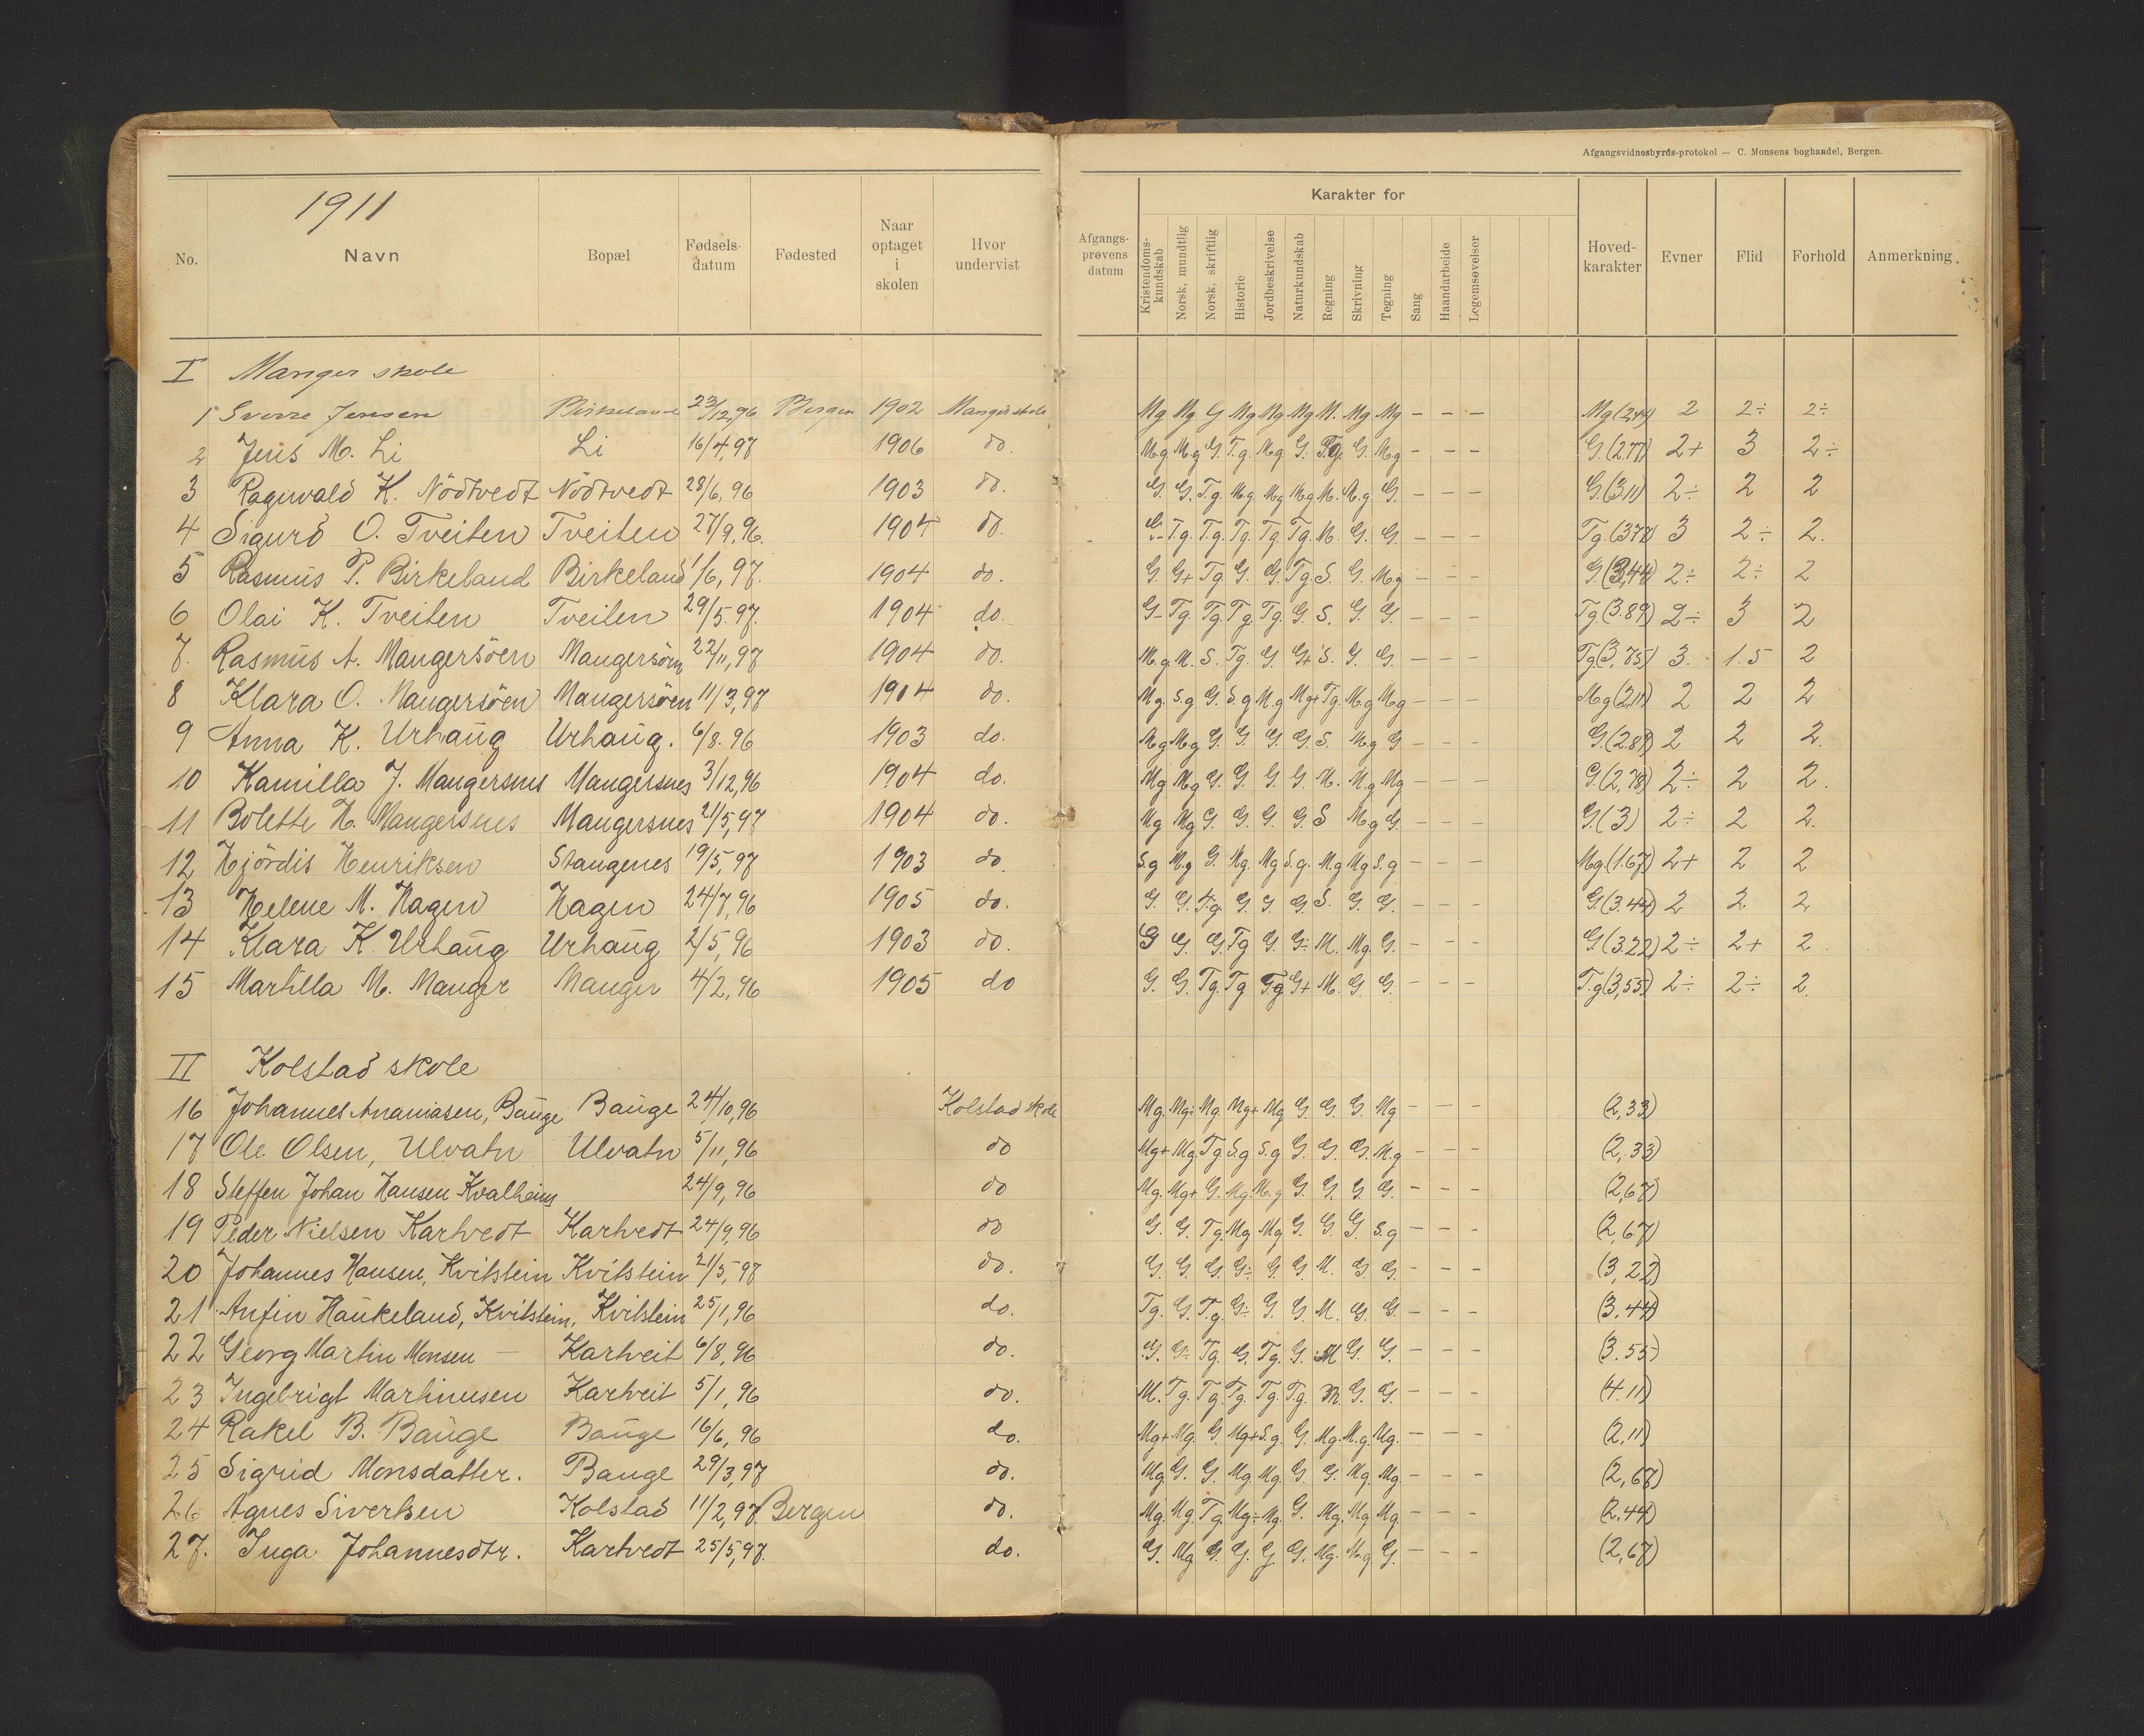 Afgangsvidnesbyrds-protokol — C. Monsens boghandel, Bergen.
1911
No. Navn Bopæl Fødselsdatum Fødested Naar optaget i skolen Hvor undervist Afgangsprøvens datum Karakter for Kristendomskundskab Norsk, mundtlig Norsk, skriftlig Historie Jordbeskrivelse Naturkundskab Regning Skrivning Tegning Sang Haandarbeide Legemsøvelser Hovedkarakter Evner Flid Forhold Anmerkning
I Manger skole
1 Sverre Jensen Birkeland 23/12,96 Bergen 1902 Manger skole Mg Mg G Mg Mg Mg M. Mg Mg – – – Mg (2,44) 2 2÷ 2÷
2 Jens M. Li Li 16/4,97 1906 do. Mg Mg G. Tg. Mg G. Tg. G. Mg – – – G. (2.77) 2+ 3 2÷
3 Ragnvald K. Nödtvedt Nödtvedt 28/6, 96 1903 do. G. G. Tg. Mg Mg Mg M. Mg G. – – – G. (3.11) 2÷ 2 2
4 Sigurd O. Tveiten Tveiten 27/9,96. 1904 do. G- Tg. Tg. Tg. Tg. Tg. M. G. G. – – – Tg. (377) 3 2÷ 2.
5 Rasmus P. Birkeland Birkeland 1/6, 97. 1904 do. G. G+ Tg. G. G. Tg. S. G. Mg – – – G. (3,44) 2÷ 2÷ 2
6 Olai K. Tveiten Tveiten 29/5.97. 1904 do. G- Tg. Tg. Tg. Tg. G. S. G. G. – – – Tg. (3.89) 2÷ 3 2
7. Rasmus A. Mangersöen Mangersöen 22/11,97 1904 do. M.g M. S. Tg. G. G+ S. G. G. – – – Tg (3,75) 3. 1.5 2
8 Klara O. Mangersöen Mangersöen 11/3,97 1904 do. Mg. S.g G. S.g M.g Mg+ Tg. Mg Mg – – – Mg (2,11) 2 2 2
9 Anna K. Urhaug Urhaug. 6/8.96 1903 do. Mg Mg G. G. G. G. S. Mg G – – – G. (2.89) 2 2 2.
10 Kamilla J. Mangersnes Mangersnes 3/12,96 1904 do. Mg Mg G. G. G. G. M. M.g Mg – – – G. (2,78) 2÷ 2 2.
11 Bolette H. Mangersnes Mangersnes 21/5,97 1904 do. Mg Mg G. G. G. G. S Mg G. – – – G. (3) 2÷ 2 2.
12 Hjördis Henriksen Stangenes 19/5,97 1903 do. S.g M.g G. Mg. Mg S.g. Mg Mg S.g – – – Mg (1.67) 2+ 2 2
13 Helene M. Hagen Hagen 24/7,96 1905 do. G. G. T.g. G. G. G. S. G. G. – – – G. (3.44) 2 2 2
14 Klara K. Urhaug Urhaug 2/5,96 1903 do. G G. G. Tg G. G÷ M. Mg G. – – – G. (3.22) 2÷ 2+ 2.
15 Martilla M. Manger Manger 4/2,96 1905 do G. G. Tg. Tg Tg G+ M. G. G. – – – T.g (3,55) 2÷ 2÷ 2.
II Kolstad skole
16 Johannes Ananiasen, Bauge Bauge 24/10,96 Kolstad skole Mg. Mg÷ Mg. Mg+ Mg G. G. G. Mg – – – (2,33)
17 Ole Olsen, Ulvatn Ulvatn 5/11,96 do Mg+ Mg Tg S.g S.g G. G. G. M.g – – – (2,33)
18 Steffen Johan Hansen Kvalheim 24/9, 96 do Mg. Mg+ G. Mg. M.g G. G. G. G. – – – (2,67)
19 Peder Nielsen Kartvedt Kartvedt 24/9,96 do G. G. Tg. Mg Mg G. G. G. S.g – – – (2,67)
20 Johannes Hansen, Kvitstein Kvitstein 21/5,97 do. G. G. G. G÷ G. G. M. G. G. – – – (3,22)
21 Anfin Haukeland, Kvitstein, Kvitstein 25/1,96 do. Tg. G. Tg. G÷ G. G. M. G. G. – – – (3.44)
22 Georg Martin Monsen – Kartveit 6/8,96 do. G. G÷ Tg. G. Tg. G. M G. G. – – – (3.55)
23 Ingebrigt Martinusen Kartveit 5/1,96 do. M. Tg. Tg. Tg. Tg. T.g. M. G. G. – – – (4.11)
24 Rakel B. Bauge Bauge 16/6, 96 do. Mg+ Mg. G. Mg+ S.g. G. Mg. M.g. Mg. – – – (2,11)
25 Sigrid Monsdatter. Bauge 29/3,97 do. Mg. G. G. Mg. Mg. G. G. Mg. Mg – – – (2,67)
26 Agnes Sivertsen Kolstad 11/2,97. Bergen do. Mg. Mg. Tg. Mg÷ Mg. G. Mg. Mg. Mg. – – – (2.44)
27. Inga Johannesdtr. Kartvedt 25/5,97. do. G. Mg G. G. G. G. Mg. M.g G. – – – (2,67)